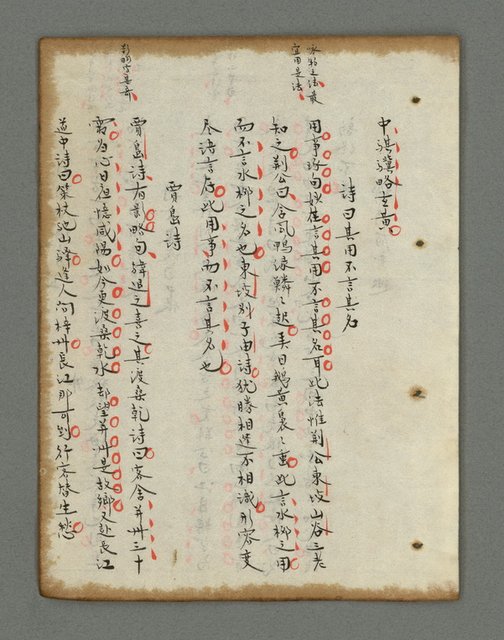 中騏驥略玄黃
詩曰其用不言其名
詠物之法最
宜用是法
用事琢句妙在言其用不言其名耳此法惟荊公東坡山谷三老
知之荊公曰含風鴨綠鱗々起弄日鵝黃裊々垂此言水柳之用
而不言水柳之名也東坡別子由詩猶勝相逢不相識形容變
盡語言存此用事而不言其名也
賈島詩
賈島詩有影略句韓退之喜之其渡桑乾詩曰客舍并州三十
影略句甚奇
霜歸心日夜憶咸陽如今東渡桑乾水却望并州是故鄉又赴長江
道中詩曰策杖馳山驛逢人問梓州長江那可到行客替生愁